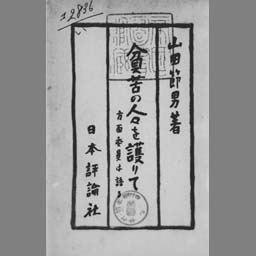 山田節男著
貧苦の人々を護りて
方面委員は語る
日本評論社